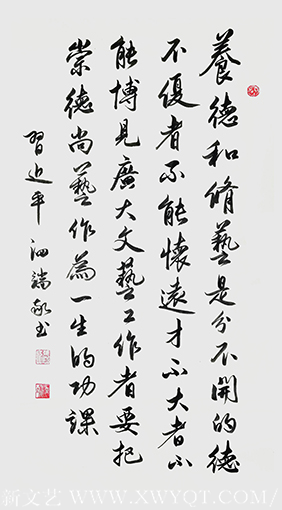 養德和脩藝是分不開的德
不優者不能懷遠才不大者不
能博見廣大文藝工作者要把
崇德尚藝作為一生的功課
習近平 泗端敬书
新文艺 WWW.XWYQT.COM/